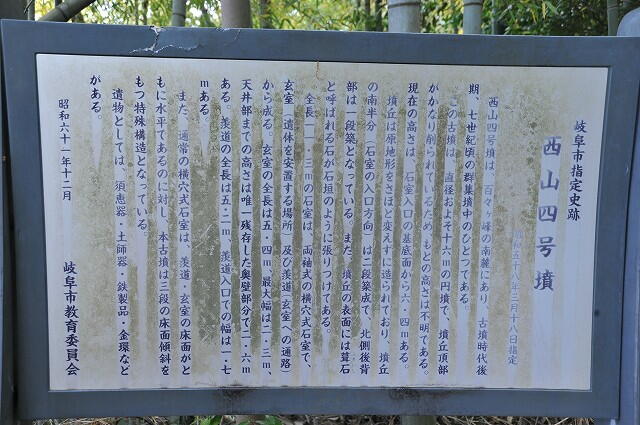 岐阜市指定史跡
西山四号墳
昭和五十八年三月十八日指定
西山四号墳は、百々ヶ峰の南麓にあり、古墳時代後
期、七世紀頃の群集墳中のひとつである。
この古墳は、直径およそ十六mの円墳で、墳丘頂部
がかなり削られているため、もとの高さは不明である。
現在の高さは、石室入口の基底面から六・四mある。
墳丘は原地形をさほど変えずに造られており、墳丘
の南半分(石室の入口方向)は二段築成で、北側後背
部は一段築となっている。また、墳丘の表面には葺石
と呼ばれる石が石垣のように張りつけてある。
全長一一・一mの石室は、両袖式の横穴式石室で、
玄室(遺体を安置する場所)及び羨道(玄室への通路)
から成る。玄室の全長は五・四m、最大幅は二・三m、
天井部までの高さは唯一残存した奥壁部分で二・六m
ある。羨道の全長は五・二m、羨道入口での幅は一・七
mある。
また、通常の横穴式石室は、羨道・玄室の床面がと
もに水平であるのに対し、本古墳は三段の床面傾斜を
もつ特殊構造となっている。
遺物としては、須恵器・土師器・鉄製品・金環など
がある。
昭和六十一年十二月
岐阜市教育委員会